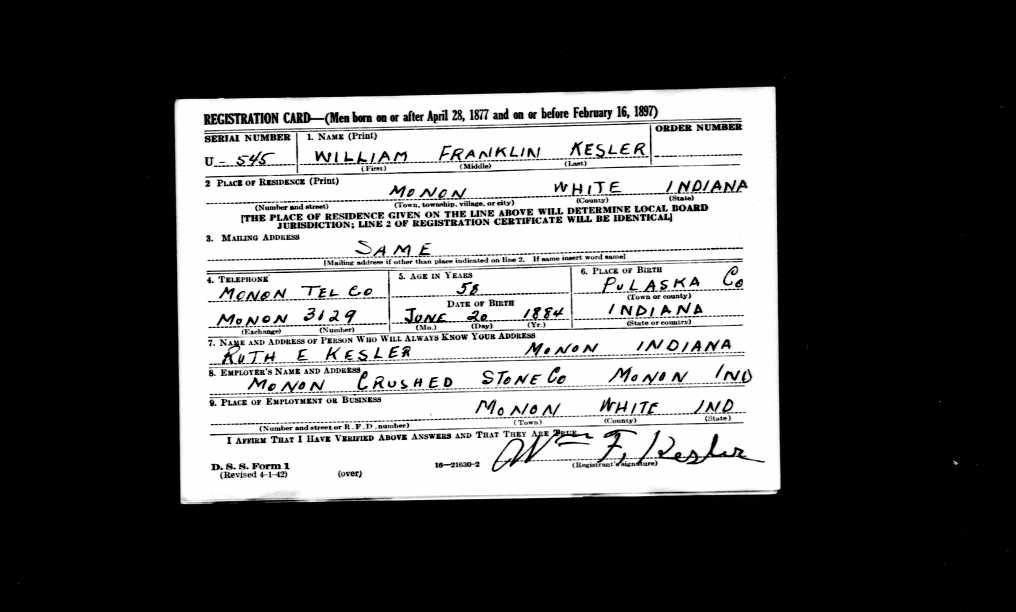 REGISTRATION CARD—(Men born on or after April 28, 1877 and on or before February 16, 1897)
SERIAL NUMBER 1. NAME (Print) ORDER NUMBER
U - 545 WILLIAM FRANKLIN KESLER
(First) (Middle) (Last)
2 PLACE OF RESIDENCE (Print)
MONON WHITE INDIANA
(Number and street) (Town, township, village, or city) (County) (State)
[THE PLACE OF RESIDENCE GIVEN ON THE LINE ABOVE WILL DETERMINE LOCAL BOARD
JURISDICTION; LINE 2 OF REGISTRATION CERTIFICATE WILL BE IDENTICAL]
3. MAILING ADDRESS
SAME
[Mailing address if other than place indicated on line 2. If same insert word same]
4. TELEPHONE 5. AGE IN YEARS 6. PLACE OF BIRTH
MONON TEL CO 58 PULASKA Co
DATE OF BIRTH (Town or county)
MONON 3129 JUNE 20 1884 INDIANA
(Exchange) (Number) (Mo.) (Day) (Yr.) (State or country)
7. NAME AND ADDRESS OF PERSON WHO WILL ALWAYS KNOW YOUR ADDRESS
RUTH E KESLER MONON INDIANA
8. EMPLOYER'S NAME AND ADDRESS
MONON CRUSHED STONE Co MONON IND
9. PLACE OF EMPLOYMENT OR BUSINESS
MONON WHITE IND
(Number and street or R. F. D. number) (Town) (County) (State)
I AFFIRM THAT I HAVE VERIFIED ABOVE ANSWERS AND THAT THEY ARE TRUE.
Wm F. Kesler
D. S. S. Form 1 16—21630-2 (Registrant's signature)
(Revised 4-1-42) (over)